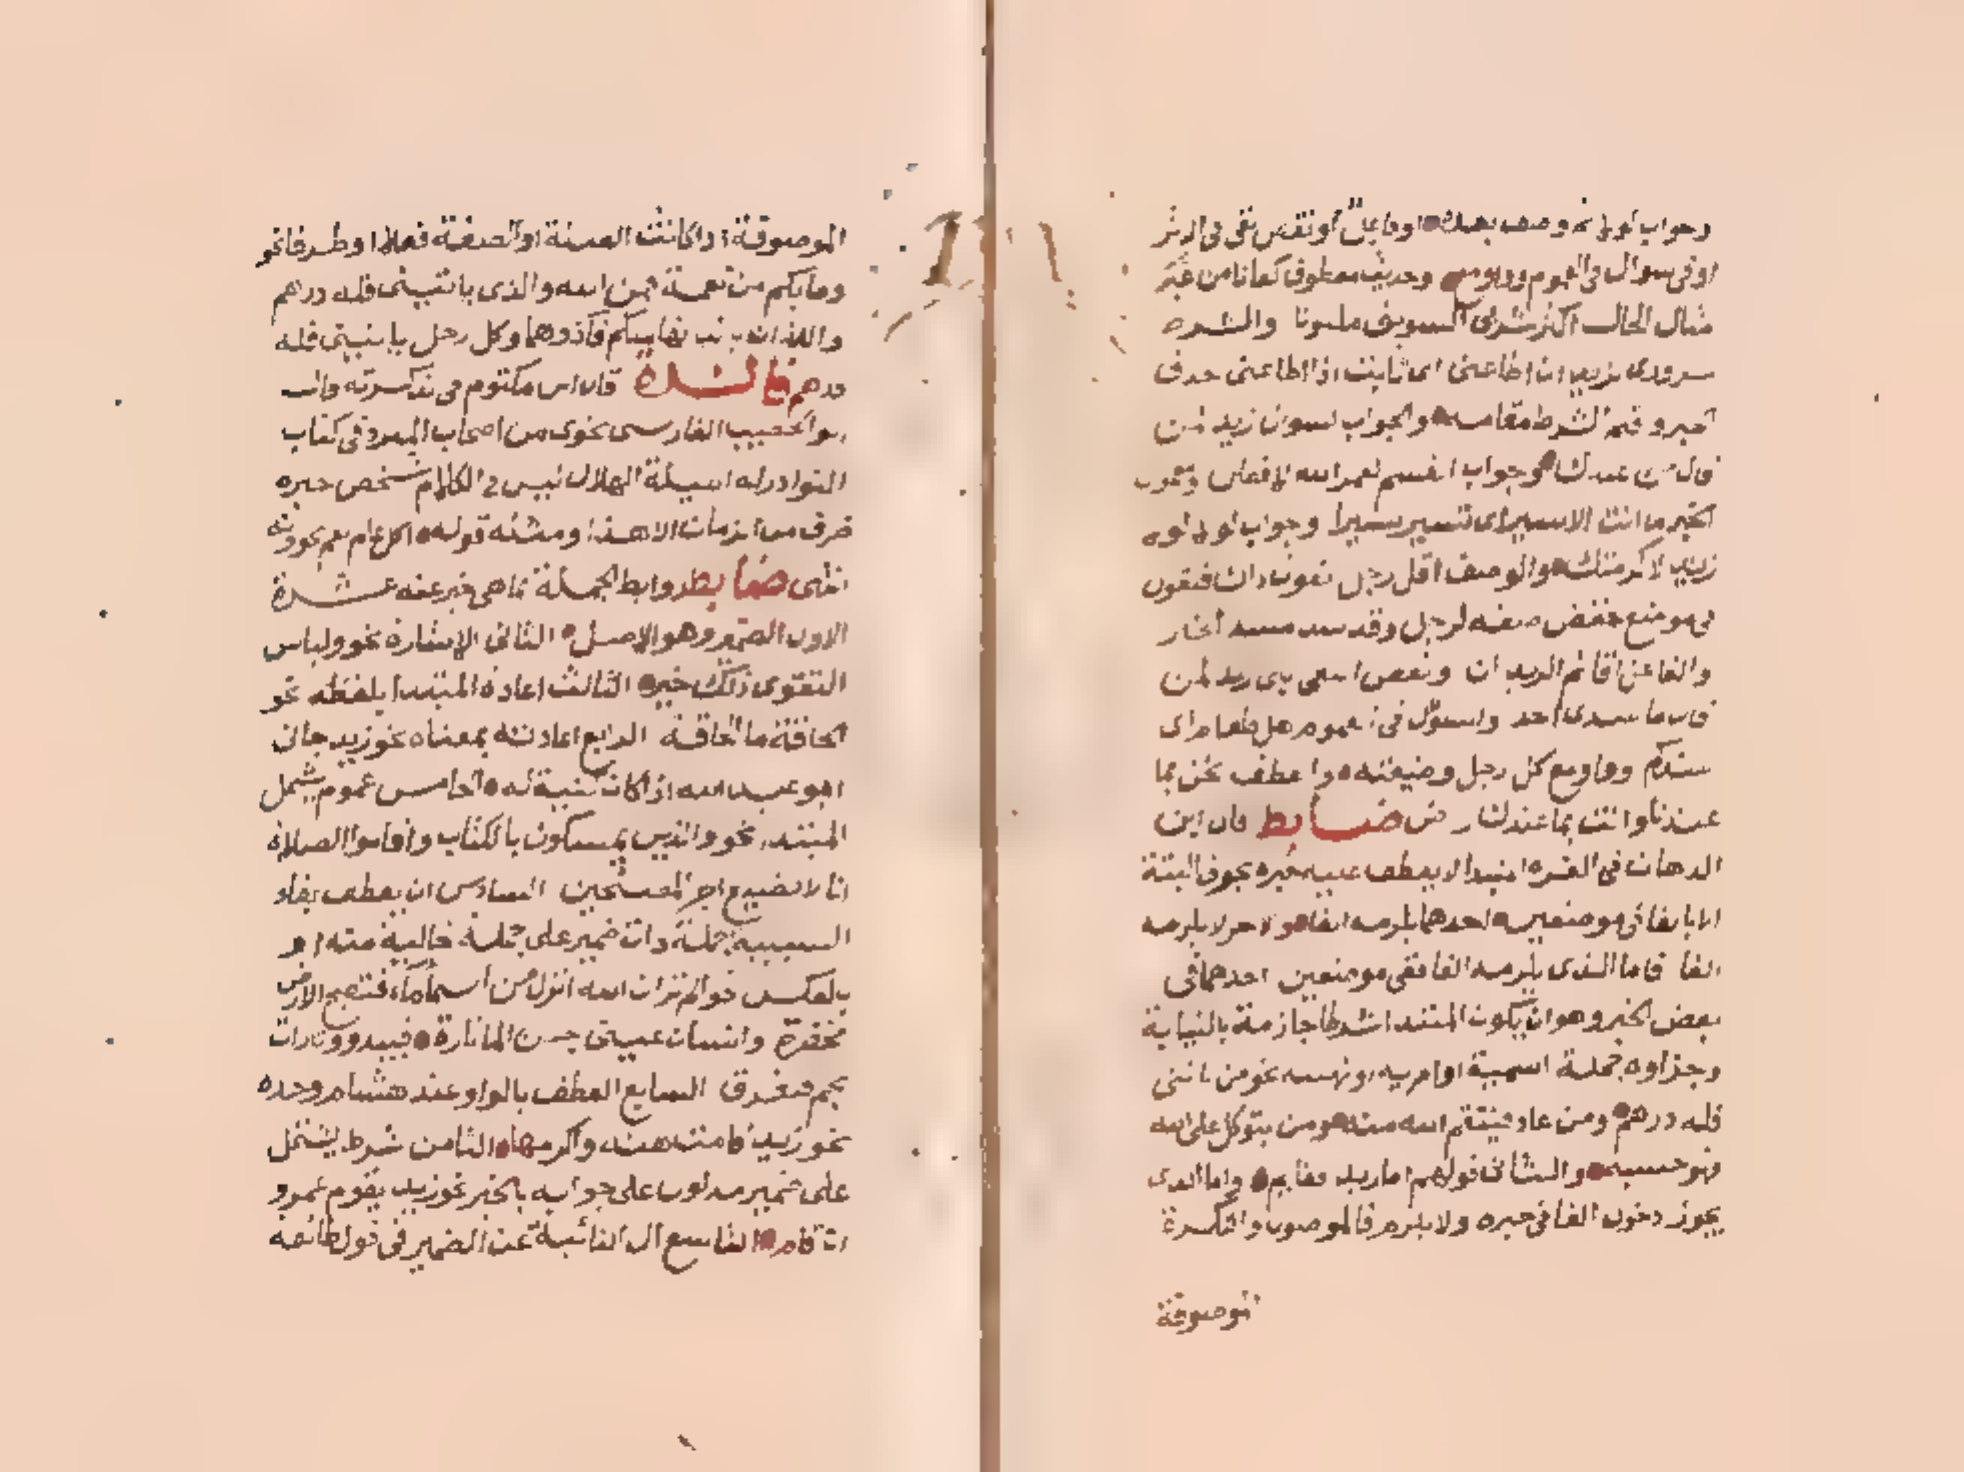 اوفى سوال فى العموم وواومع وحديث معطوف كفانا من غبر
مثال الحال اكثر شربى السويق ملتوتا والشرط
سرورى بزيد ان اطاعنى اى ثابت اذا اطاعنى حذف
الخبر وقيم الشرط مقامه والجواب لسوال زيد لمن
قال من عندك وجواب القسم لعمر الله لافعلن
الخبر ما انت الا سيرا اى تسير سيرا وجواب لولا لولا
زيد لاكرمتك والوصف اقل رجل يقول ذاك فيقول
فى موضع خفض صفة لرجل وقد سد مسد الخبر
والفاعل اقائم الزيدان
قال ما عندى احد والسوال فى العموم هل طعام اى
عندكم وواومع كل رجل وضيعته والعطف نحن بما
عندنا وانت بما عندك راض ضابط قال ابن
الدهان فى الغرة المبتدا لا يعطف عليه خبره بحرف البتة
الا بالفا فى موضعين احدهما يلزمه الفا والاخر لا يلزمه
الفا فاما الذى يلزمه الفا ففى موضعين احدهما فى
بعض الخبر وهو ان يكون المبتدا شرطا جازما بالنيابة
وجزاوه جملة اسمية او امرية او نهيية نحو من ياتنى
فله درهم ومن عاد فينتقم الله منه ومن يتوكل على الله
فهو حسبه والثانى قولهم اما زيد فقايم واما الذى
يجوز دخول الفا فى خبره ولا يلزم فالموصول والنكرة
الموصوفة
الموصوفة اذا كانت الصلة او الصفة فعلا او ظرفا نحو
وما بكم من نعمة فمن الله والذى ياتينى فله درهم
واللذان ياتيانها منكم فآذوهما وكل رجل ياتينى فله
درهم فائدة قال ابن مكتوم فى تذكرته قال
ابو الخصيب الفارسى نحوى من اصحاب المبرد فى كتاب
النوادر له اسيلة الهلال ليس فى الكلام شخص خبره
ظرف من الزمان الا هذا ومثله قوله اكل عام نعم تحوونه
انتهى ضابط روابط الجملة بما هى خبر عنه عشرة
الاول الضمير وهو الاصل الثانى الاشارة نحو ولباس
التقوى ذلك خير الثالث اعادة المبتدا بلفظه نحو
الحاقة ما الحاقة الرابع اعادته بمعناه نحو زيد جانى
ابو عبد الله اذا كان كنية له الخامس عموم يشمل
المبتدا نحو والذين يمسكون بالكتاب واقاموا الصلاة
انا لا نضيع اجر المصلحين السادس ان يعطف بفاء
السببية جملة ذات ضمير على جملة خالية منه او
بالعكس نحو الم تر ان الله انزل من السماء ماء فتصبح الارض
مخضرة وانسان عينى يحسر الما تارة فيبدو وتارات
يجم فيغرق السابع العطف بالواو عند هشام وحده
نحو زيد قامت هند واكرمها الثامن شرط يشتمل
على ضمير مدلول على جوابه بالخبر نحو زيد يقوم عمرو
ان قام التاسع ال النائبة عن الضمير فى قول طائفة